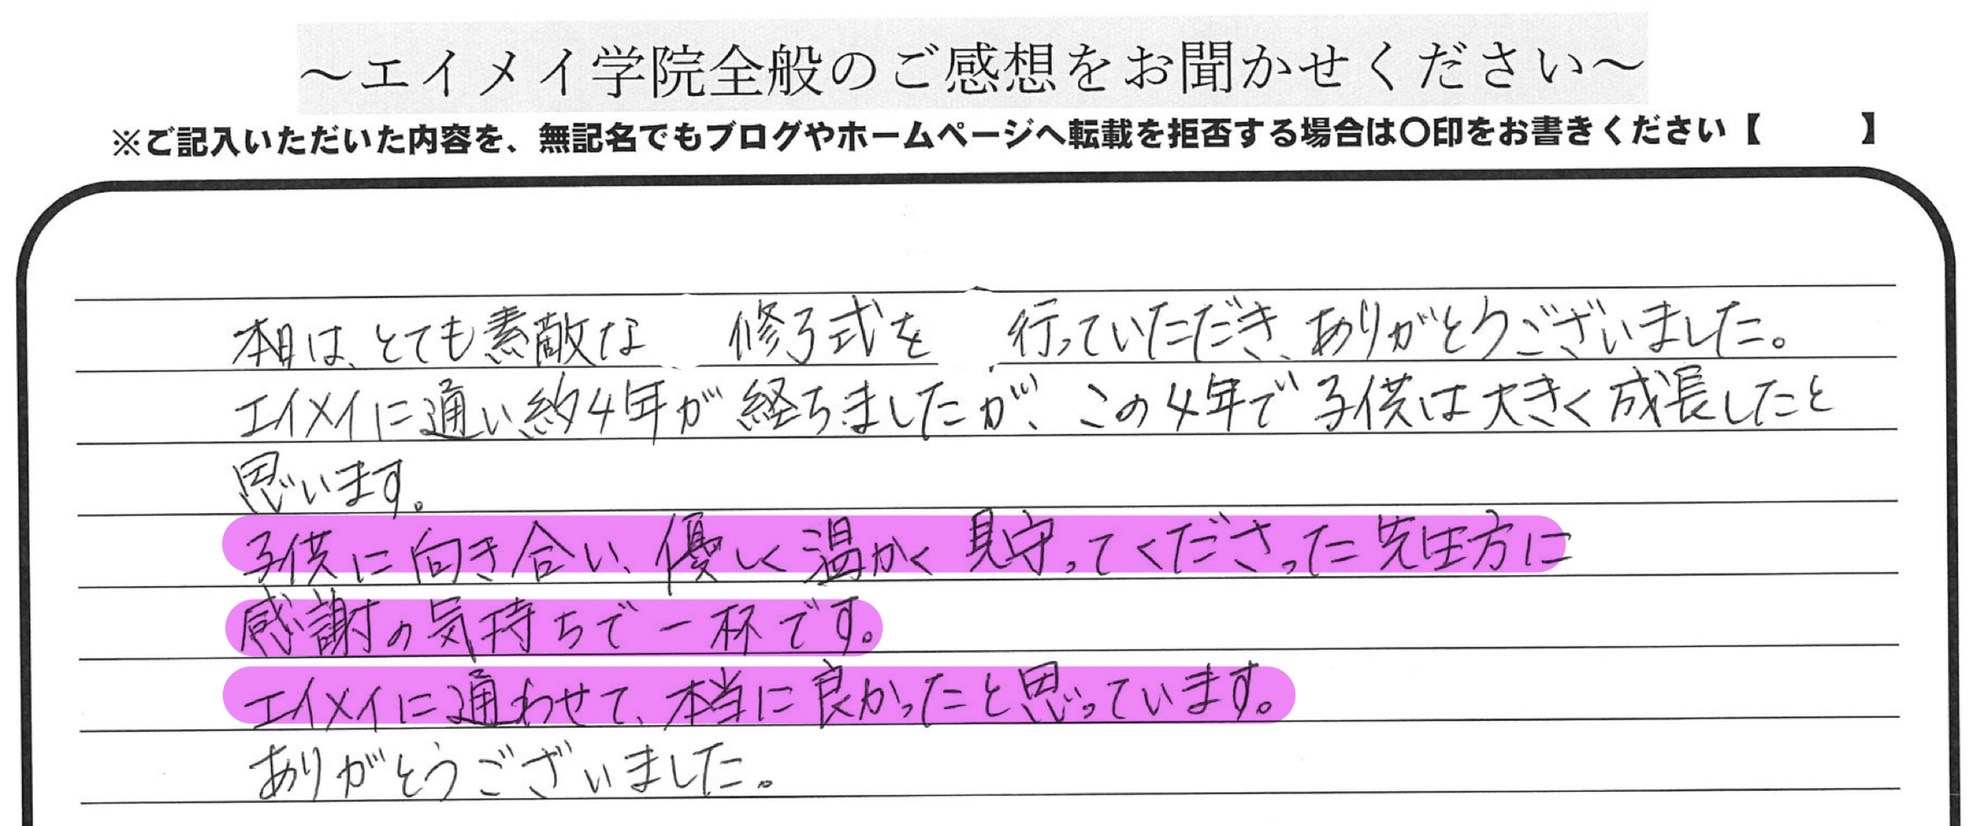 ～エイメイ学院全般のご感想をお聞かせください～
※ご記入いただいた内容を、無記名でもブログやホームページへ転載を拒否する場合は〇印をお書きください【　　　】
本日は、とても素敵な　修了式を　行っていただき、ありがとうございました。
エイメイに通い約4年が経ちましたが、この4年で子供は大きく成長したと
思います。
子供に向き合い、優しく温かく見守ってくださった先生方に
感謝の気持ちで一杯です。
エイメイに通わせて、本当に良かったと思っています。
ありがとうございました。